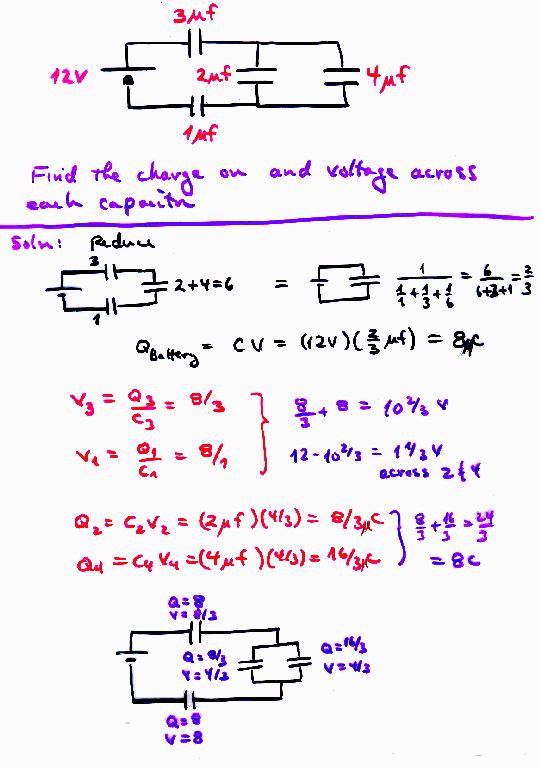 3μf
12V
2μf
4μf
1μf
Find the charge on and voltage across
each capacitor
Soln: Reduce
3
2+4=6
1
= 1/(1/1 + 1/3 + 1/6) = 6/(6+2+1) = 2/3
Q Battery = CV = (12V)(2/3 μf) = 8μC
V3 = Q3/C3 = 8/3
8/3 + 8 = 10 2/3 V
V1 = Q1/C1 = 8/1
12 - 10 2/3 = 1 1/3 V
across 2 & 4
Q2 = C2V2 = (2μf)(4/3) = 8/3μC
8/3 + 16/3 = 24/3
Q4 = C4V4 = (4μf)(4/3) = 16/3μC
= 8C
Q=8
V=8/3
Q=8/3
V=4/3
Q=16/3
V=4/3
Q=8
V=8